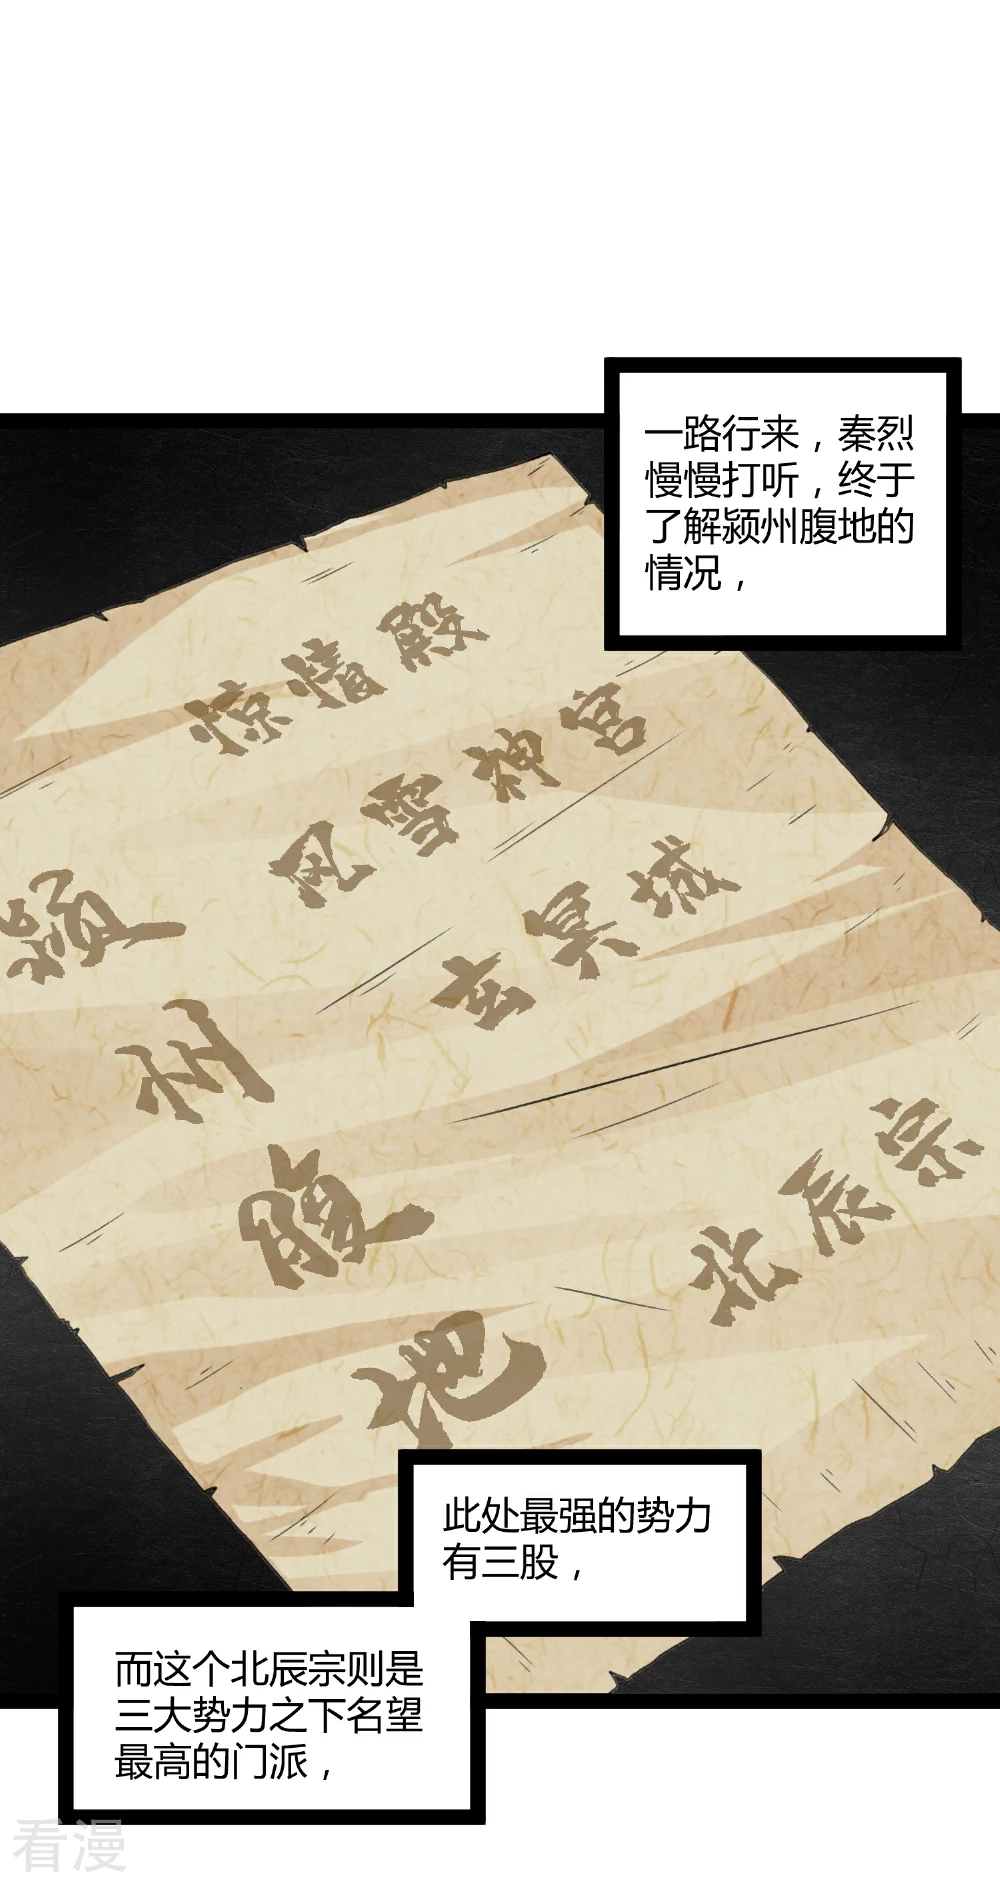 一路行来，秦烈
慢慢打听，终于
了解颍州腹地的
情况，
惊情殿
风雪神宫
玄冥域
颍州腹地
北辰宗
此处最强的势力
有三股，
而这个北辰宗则是
三大势力之下名望
最高的门派，
看漫